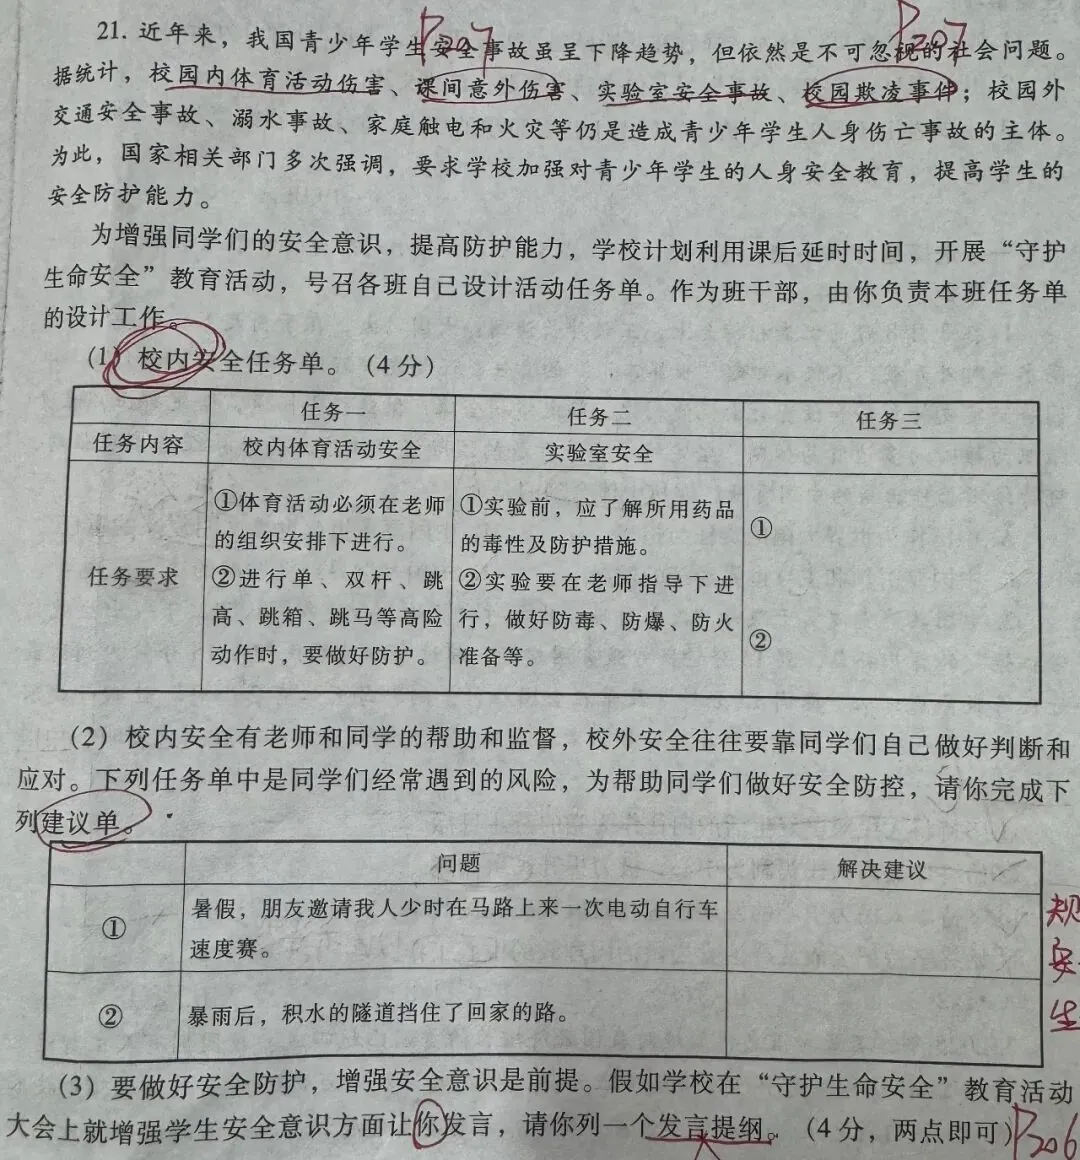 P207 P207
21. 近年来，我国青少年学生安全事故虽呈下降趋势，但依然是不可忽视的社会问题。
据统计，校园内体育活动伤害、课间意外伤害、实验室安全事故、校园欺凌事件；校园外
交通安全事故、溺水事故、家庭触电和火灾等仍是造成青少年学生人身伤亡事故的主体。
为此，国家相关部门多次强调，要求学校加强对青少年学生的人身安全教育，提高学生的
安全防护能力。
为增强同学们的安全意识，提高防护能力，学校计划利用课后延时时间，开展“守护
生命安全”教育活动，号召各班自己设计活动任务单。作为班干部，由你负责本班任务单
的设计工作。
（1）校内安全任务单。（4分）
任务一 任务二 任务三
任务内容 校内体育活动安全 实验室安全
任务要求
①体育活动必须在老师
的组织安排下进行。
②进行单、双杆、跳
高、跳箱、跳马等高险
动作时，要做好防护。
①实验前，应了解所用药品
的毒性及防护措施。
②实验要在老师指导下进
行，做好防毒、防爆、防火
准备等。
①
②
（2）校内安全有老师和同学的帮助和监督，校外安全往往要靠同学们自己做好判断和
应对。下列任务单中是同学们经常遇到的风险，为帮助同学们做好安全防控，请你完成下
列建议单。
问题 解决建议
① 暑假，朋友邀请我人少时在马路上来一次电动自行车
速度赛。
② 暴雨后，积水的隧道挡住了回家的路。
规
安
生
（3）要做好安全防护，增强安全意识是前提。假如学校在“守护生命安全”教育活动
大会上就增强学生安全意识方面让你发言，请你列一个发言提纲。（4分，两点即可）P206